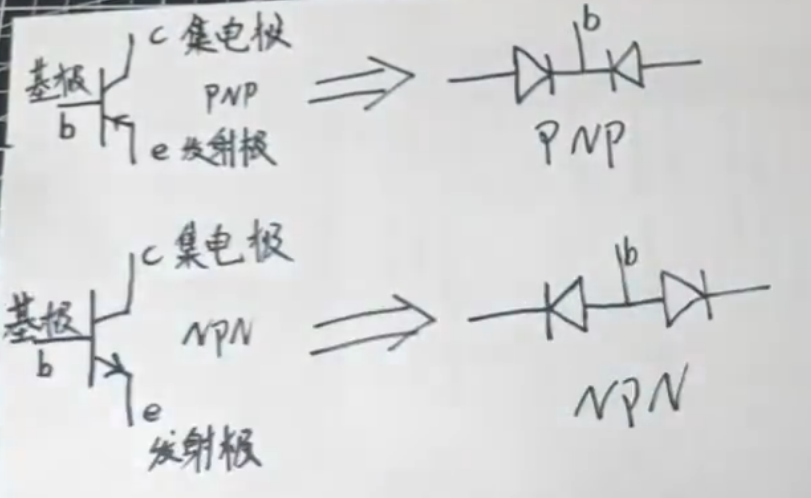 c 集电极
b
基极
PNP
b
e 发射极
PNP
c 集电极
b
基极
NPN
b
e
发射极
NPN